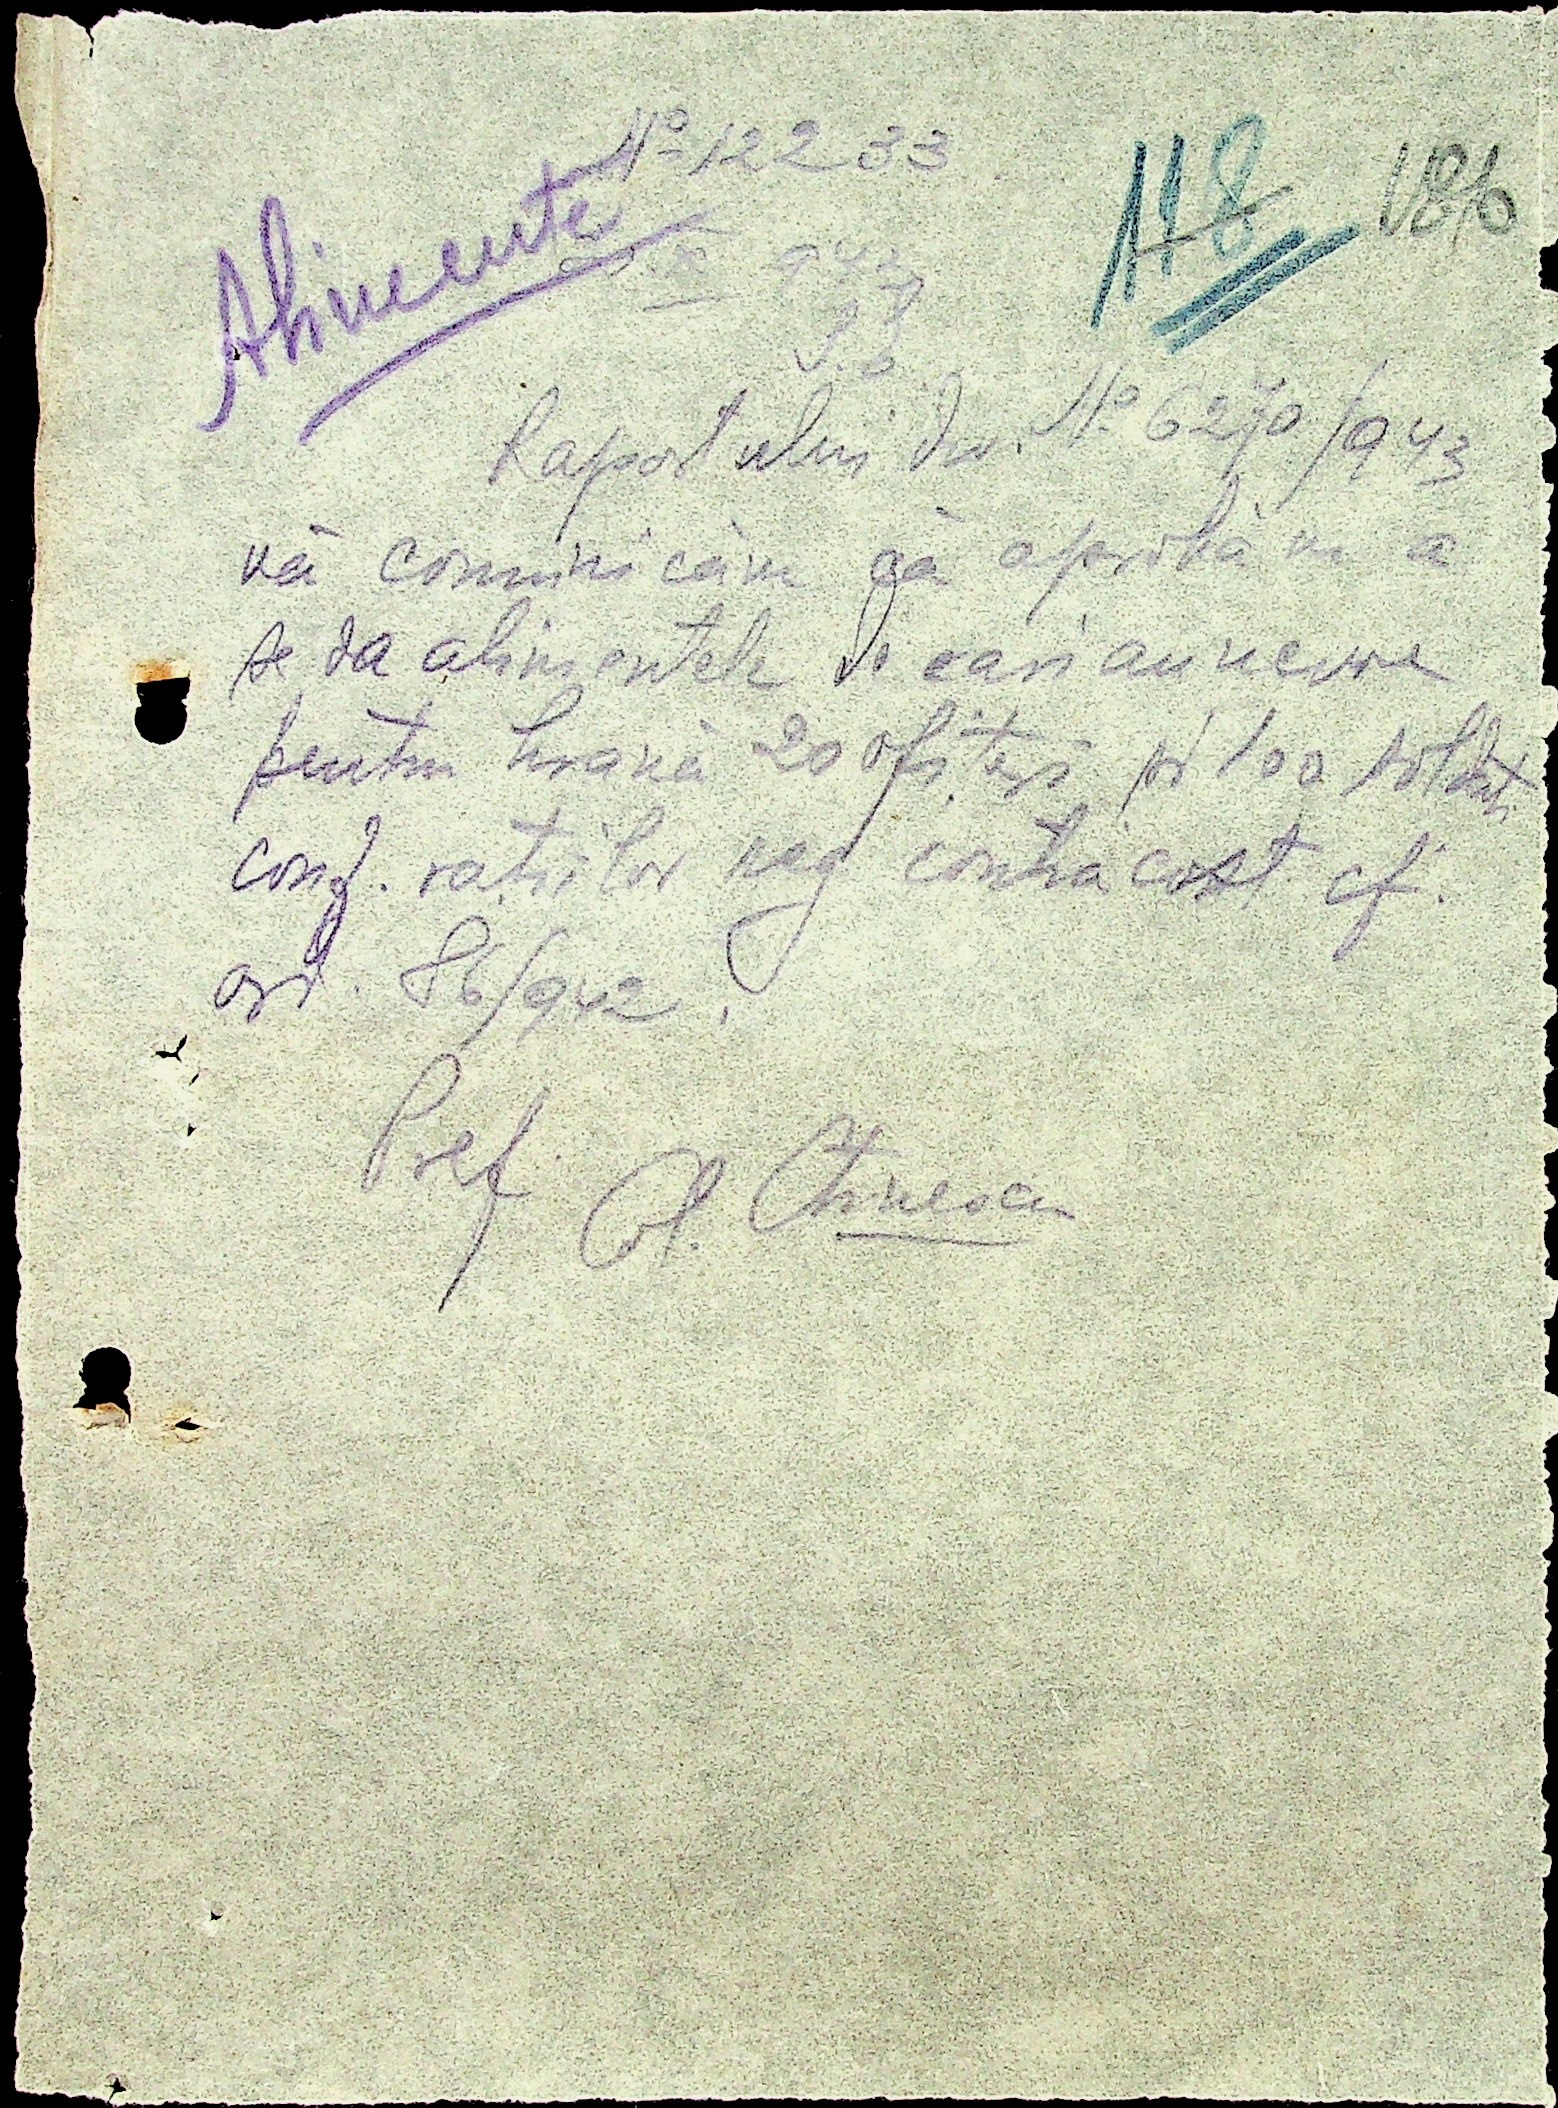 Nº 12233
118 186
Alimente
943
Raportului Dv. Nº 6270/943
vă comunicăm că aprobăm a
se da alimentele de cari au nevoe
pentru hrană 20 ofițeri și 100 soldați
conf. rațiilor reg contra cost cf.
ord. 86/942.
Pref Col.